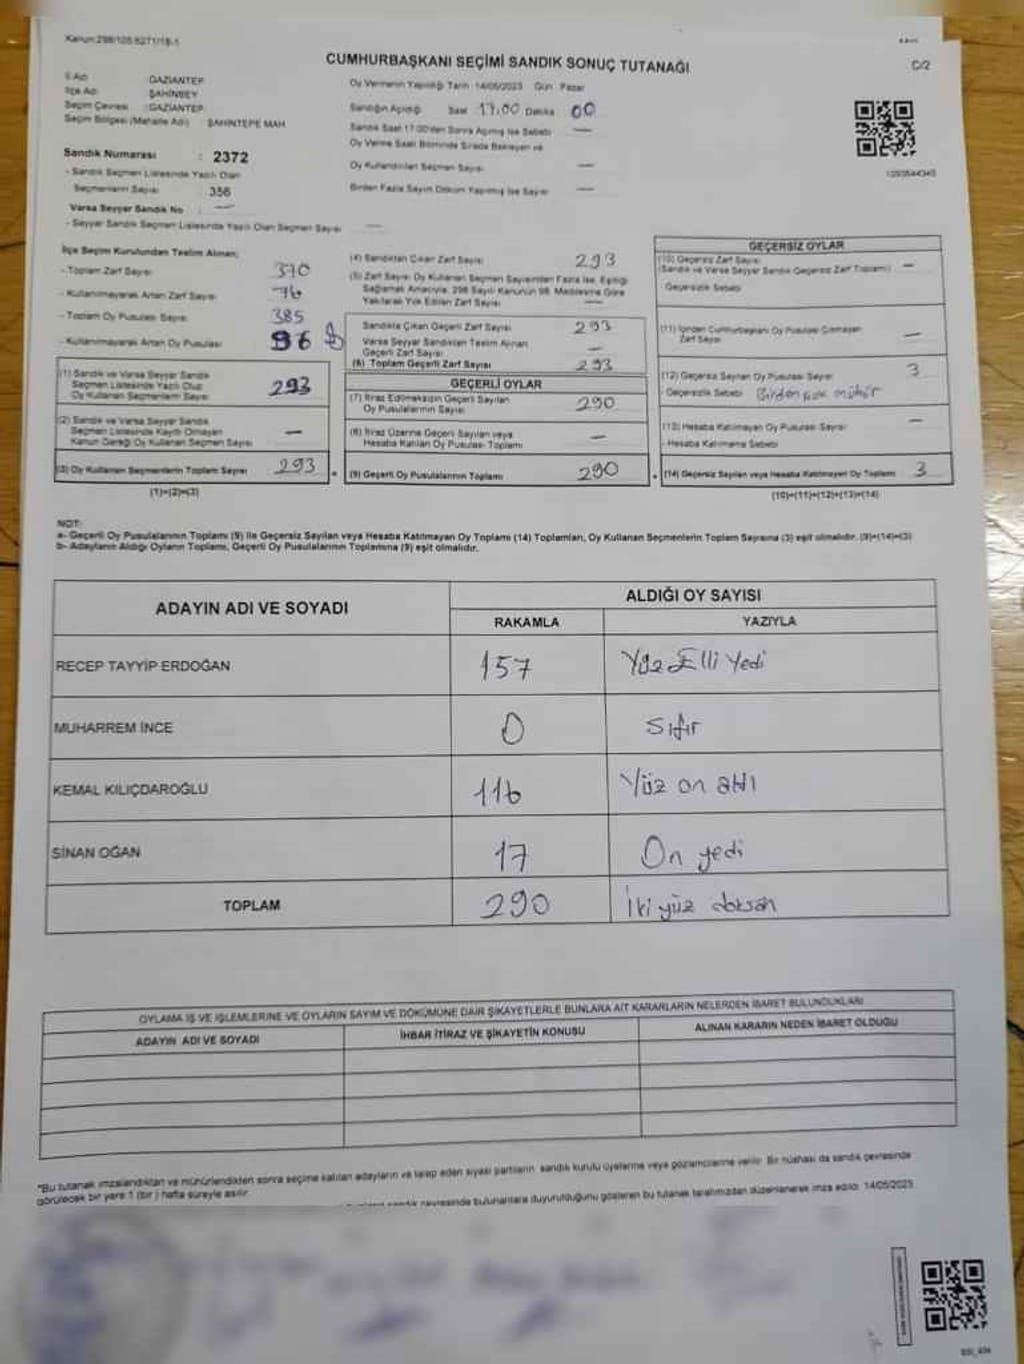 CUMHURBAŞKANI SEÇİMİ SANDIK SONUÇ TUTANAĞI
C/2
İl Adı GAZİANTEP
İlçe Adı ŞAHİNBEY
Seçim Çevresi : GAZİANTEP
Seçim Bölgesi (Mahalle Adı) ŞAHİNTEPE MAH
Sandık Numarası : 2372
- Sandık Seçmen Listesinde Yazılı Olan
Seçmenlerin Sayısı 356
Varsa Seyyar Sandık No : —
- Seyyar Sandık Seçmen Listesinde Yazılı Olan Seçmen Sayısı —
Oy Vermenin Yapıldığı Tarih 14/05/2023 Gün Pazar
Sandığın Açıldığı Saat 17:00 Dakika 00
Sandık Saat 17:00'den Sonra Açılmış İse Sebebi —
Oy Verme Saati Bitiminde Sırada Bekleyen ve
Oy Kullandırılan Seçmen Sayısı —
Birden Fazla Sayım Döküm Yapılmış İse Sayısı —
İlçe Seçim Kurulundan Teslim Alınan;
- Toplam Zarf Sayısı 370
- Kullanılmayarak Artan Zarf Sayısı 76
- Toplam Oy Pusulası Sayısı 385
- Kullanılmayarak Artan Oy Pusulası 96
(1) Sandık ve Varsa Seyyar Sandık
Seçmen Listesinde Yazılı Olup
Oy Kullanan Seçmenlerin Sayısı 293
(2) Sandık ve Varsa Seyyar Sandık
Seçmen Listesinde Kayıtlı Olmayan
Kanun Gereği Oy Kullanan Seçmen Sayısı —
(3) Oy Kullanan Seçmenlerin Toplam Sayısı 293
(1)+(2)=(3)
(4) Sandıktan Çıkan Zarf Sayısı 293
(5) Zarf Sayısı Oy Kullanan Seçmen Sayısından Fazla İse, Eşitliği
Sağlamak Amacıyla, 298 Sayılı Kanunun 98. Maddesine Göre
Yakılarak Yok Edilen Zarf Sayısı —
Sandıkta Çıkan Geçerli Zarf Sayısı 293
Varsa Seyyar Sandıktan Teslim Alınan
Geçerli Zarf Sayısı —
(6) Toplam Geçerli Zarf Sayısı 293
GEÇERLİ OYLAR
(7) İtiraz Edilmeksizin Geçerli Sayılan
Oy Pusulalarının Sayısı 290
(8) İtiraz Üzerine Geçerli Sayılan veya
Hesaba Katılan Oy Pusulası Toplamı —
(9) Geçerli Oy Pusulalarının Toplamı 290
GEÇERSİZ OYLAR
(10) Geçersiz Zarf Sayısı —
(Sandık ve Varsa Seyyar Sandık Geçersiz Zarf Toplamı)
Geçersizlik Sebebi
(11) İçinden Cumhurbaşkanı Oy Pusulası Çıkmayan
Zarf Sayısı —
(12) Geçersiz Sayılan Oy Pusulası Sayısı 3
- Geçersizlik Sebebi Birden çok mühür
(13) Hesaba Katılmayan Oy Pusulası Sayısı —
- Hesaba Katılmama Sebebi
(14) Geçersiz Sayılan veya Hesaba Katılmayan Oy Toplamı 3
(10)+(11)+(12)+(13)=(14)
NOT:
a- Geçerli Oy Pusulalarının Toplamı (9) ile Geçersiz Sayılan veya Hesaba Katılmayan Oy Toplamı (14) Toplamları, Oy Kullanan Seçmenlerin Toplam Sayısına (3) eşit olmalıdır. (9)+(14)=(3)
b- Adayların Aldığı Oyların Toplamı, Geçerli Oy Pusulalarının Toplamına (9) eşit olmalıdır.
ADAYIN ADI VE SOYADI ALDIĞI OY SAYISI
RAKAMLA YAZIYLA
RECEP TAYYİP ERDOĞAN 157 Yüz Elli Yedi
MUHARREM İNCE 0 Sıfır
KEMAL KILIÇDAROĞLU 116 Yüz on altı
SİNAN OĞAN 17 On yedi
TOPLAM 290 İki yüz doksan
OYLAMA İŞ VE İŞLEMLERİNE VE OYLARIN SAYIM VE DÖKÜMÜNE DAİR ŞİKAYETLERLE BUNLARA AİT KARARLARIN NELERDEN İBARET BULUNDUKLARI
ADAYIN ADI VE SOYADI İHBAR İTİRAZ VE ŞİKAYETİN KONUSU ALINAN KARARIN NEDEN İBARET OLDUĞU
"Bu tutanak imzalandıktan ve mühürlendikten sonra seçime katılan adayların ve talep eden siyasi partilerin sandık kurulu üyelerine veya gözlemcilerine verilir. Bir nüshası da sandık çevresinde
görülecek bir yere 1 (bir) hafta süreyle asılır.
sandık çevresinde bulunanlara duyurulduğunu gösteren bu tutanak tarafımızdan düzenlenerek imza edildi. 14/05/2023